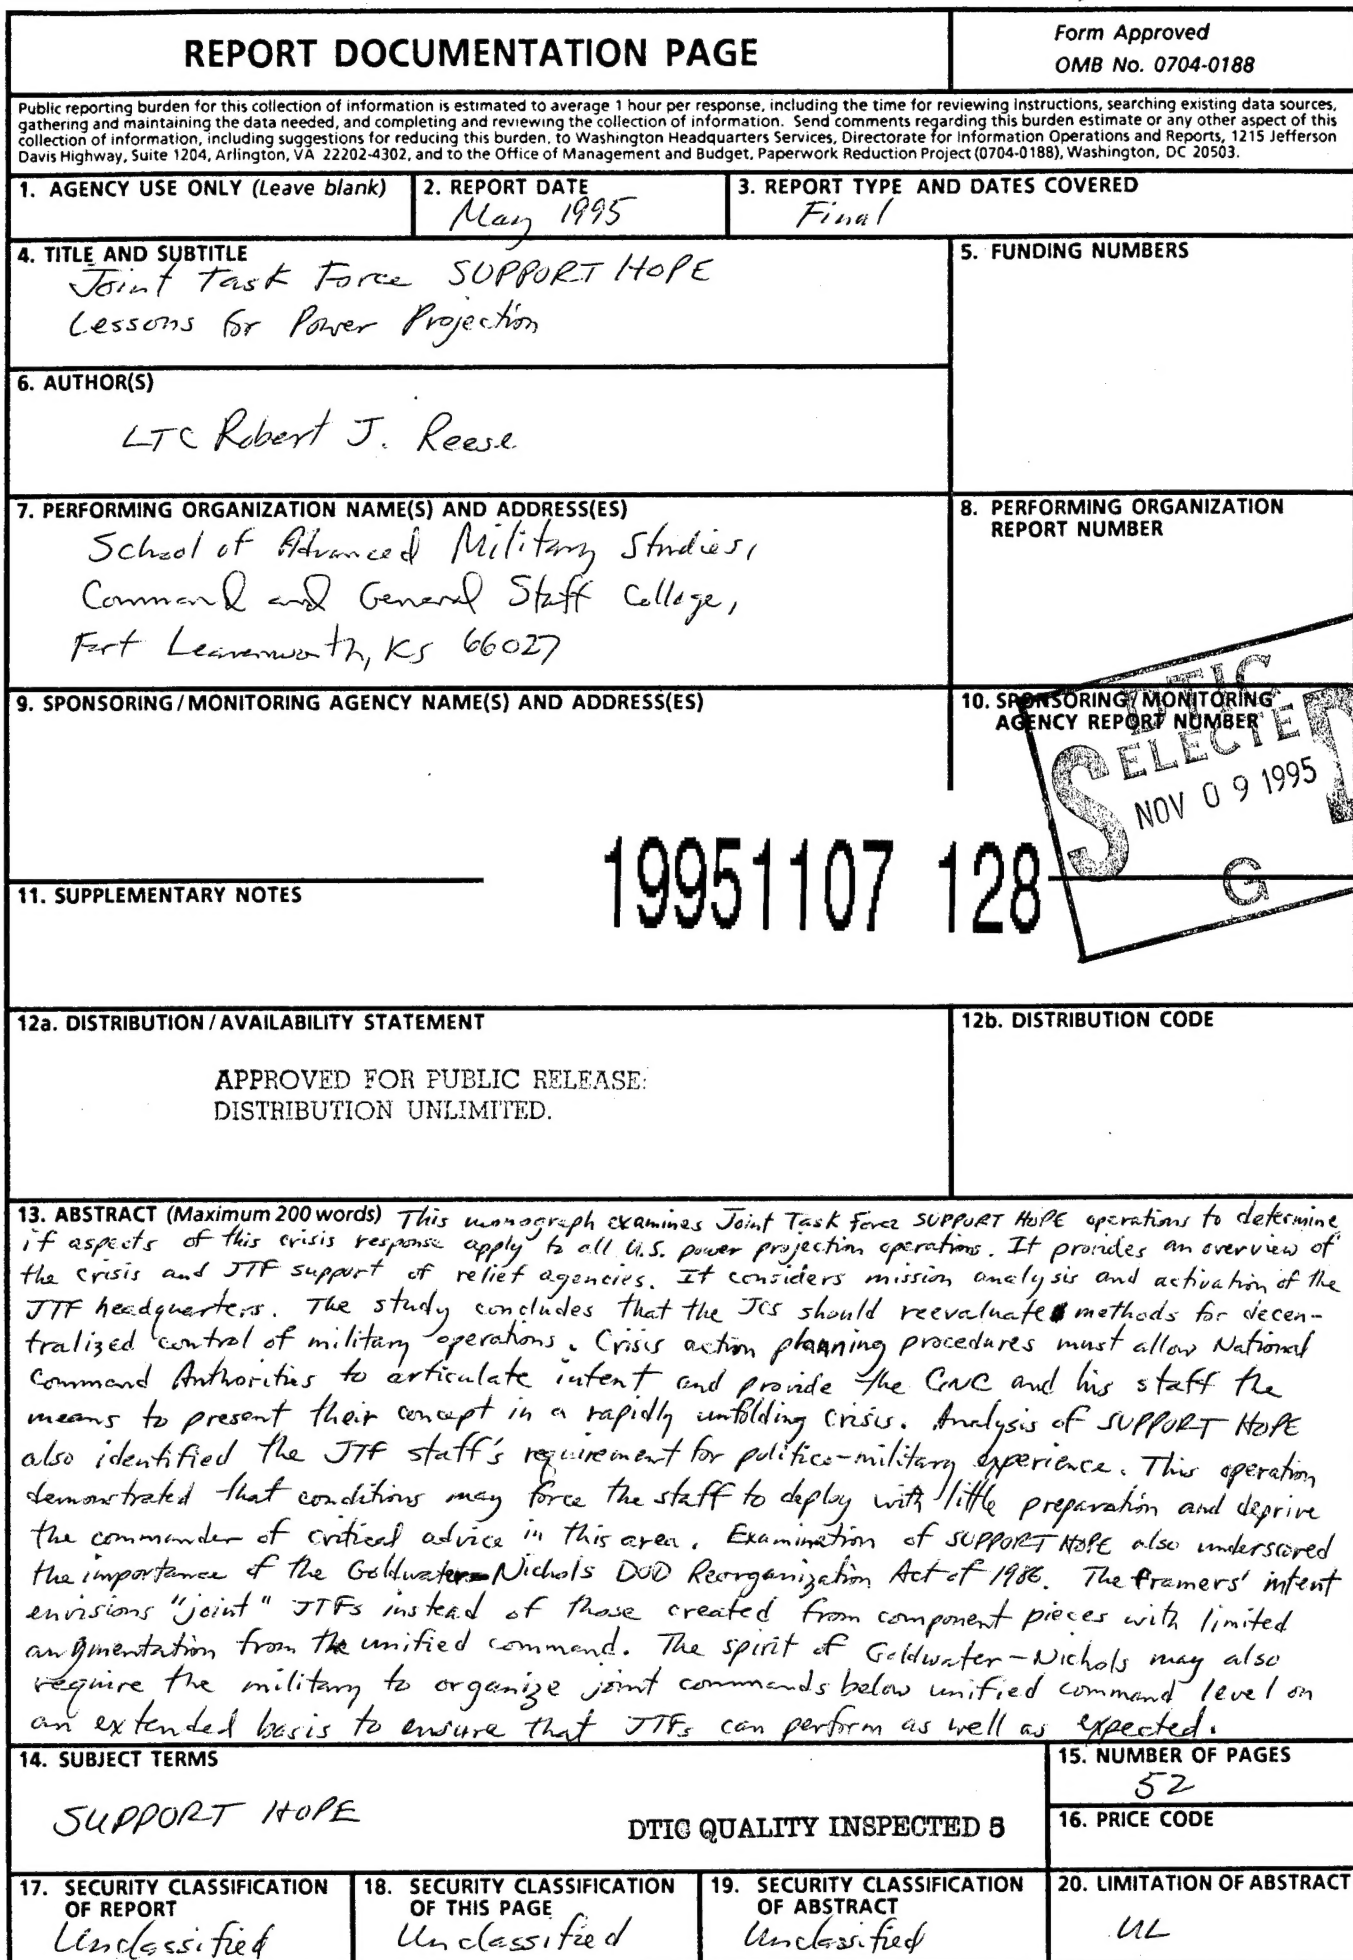 REPORT DOCUMENTATION PAGE
Form Approved
OMB No. 0704-0188
Public reporting burden for this collection of information is estimated to average 1 hour per response, including the time for reviewing instructions, searching existing data sources,
gathering and maintaining the data needed, and completing and reviewing the collection of information. Send comments regarding this burden estimate or any other aspect of this
collection of information, including suggestions for reducing this burden, to Washington Headquarters Services, Directorate for Information Operations and Reports, 1215 Jefferson
Davis Highway, Suite 1204, Arlington, VA 22202-4302, and to the Office of Management and Budget, Paperwork Reduction Project (0704-0188), Washington, DC 20503.
1. AGENCY USE ONLY (Leave blank)
2. REPORT DATE
May 1995
3. REPORT TYPE AND DATES COVERED
Final
4. TITLE AND SUBTITLE
Joint Task Force SUPPORT HOPE
Lessons for Power Projection
5. FUNDING NUMBERS
6. AUTHOR(S)
LTC Robert J. Reese
7. PERFORMING ORGANIZATION NAME(S) AND ADDRESS(ES)
School of Advanced Military Studies,
Command and General Staff College,
Fort Leavenworth, KS 66027
8. PERFORMING ORGANIZATION
REPORT NUMBER
9. SPONSORING/MONITORING AGENCY NAME(S) AND ADDRESS(ES)
10. SPONSORING/MONITORING
AGENCY REPORT NUMBER
DTIC
SELECTED
NOV 09 1995
G
19951107 128
11. SUPPLEMENTARY NOTES
12a. DISTRIBUTION/AVAILABILITY STATEMENT
APPROVED FOR PUBLIC RELEASE:
DISTRIBUTION UNLIMITED.
12b. DISTRIBUTION CODE
13. ABSTRACT (Maximum 200 words) This monograph examines Joint Task Force SUPPORT HOPE operations to determine
if aspects of this crisis response apply to all U.S. power projection operations. It provides an overview of
the crisis and JTF support of relief agencies. It considers mission analysis and activation of the
JTF headquarters. The study concludes that the JCS should reevaluate methods for decen-
tralized control of military operations. Crisis action planning procedures must allow National
Command Authorities to articulate intent and provide the CINC and his staff the
means to present their concept in a rapidly unfolding crisis. Analysis of SUPPORT HOPE
also identified the JTF staff's requirement for politico-military experience. This operation
demonstrated that conditions may force the staff to deploy with little preparation and deprive
the commander of critical advice in this area. Examination of SUPPORT HOPE also underscored
the importance of the Goldwater-Nichols DOD Reorganization Act of 1986. The framers' intent
envisions "joint" JTFs instead of those created from component pieces with limited
augmentation from the unified command. The spirit of Goldwater-Nichols may also
require the military to organize joint commands below unified command level on
an extended basis to ensure that JTFs can perform as well as expected.
14. SUBJECT TERMS
SUPPORT HOPE
DTIC QUALITY INSPECTED 5
15. NUMBER OF PAGES
52
16. PRICE CODE
17. SECURITY CLASSIFICATION
OF REPORT
Unclassified
18. SECURITY CLASSIFICATION
OF THIS PAGE
Unclassified
19. SECURITY CLASSIFICATION
OF ABSTRACT
Unclassified
20. LIMITATION OF ABSTRACT
UL